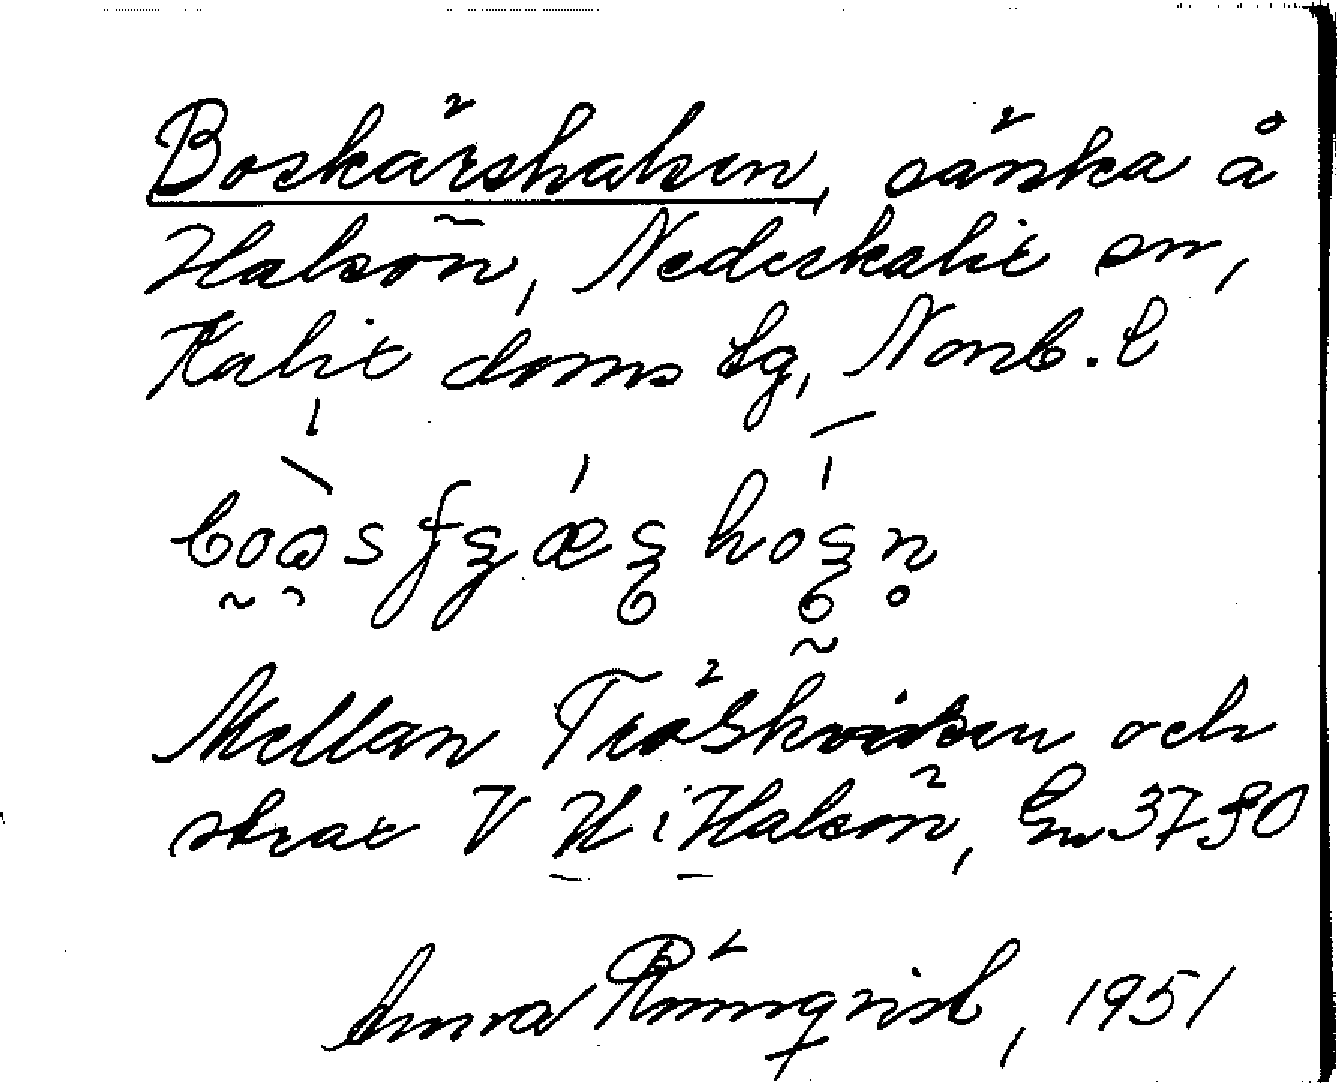 Boskärshalsen, sänka å
Halsön, Nederkalix sn,
Kalix doms lg, Norrb. l
Mellan Träskviken och
strax V H i Halsön, Em 3730
Anna Rönnqvist, 1951